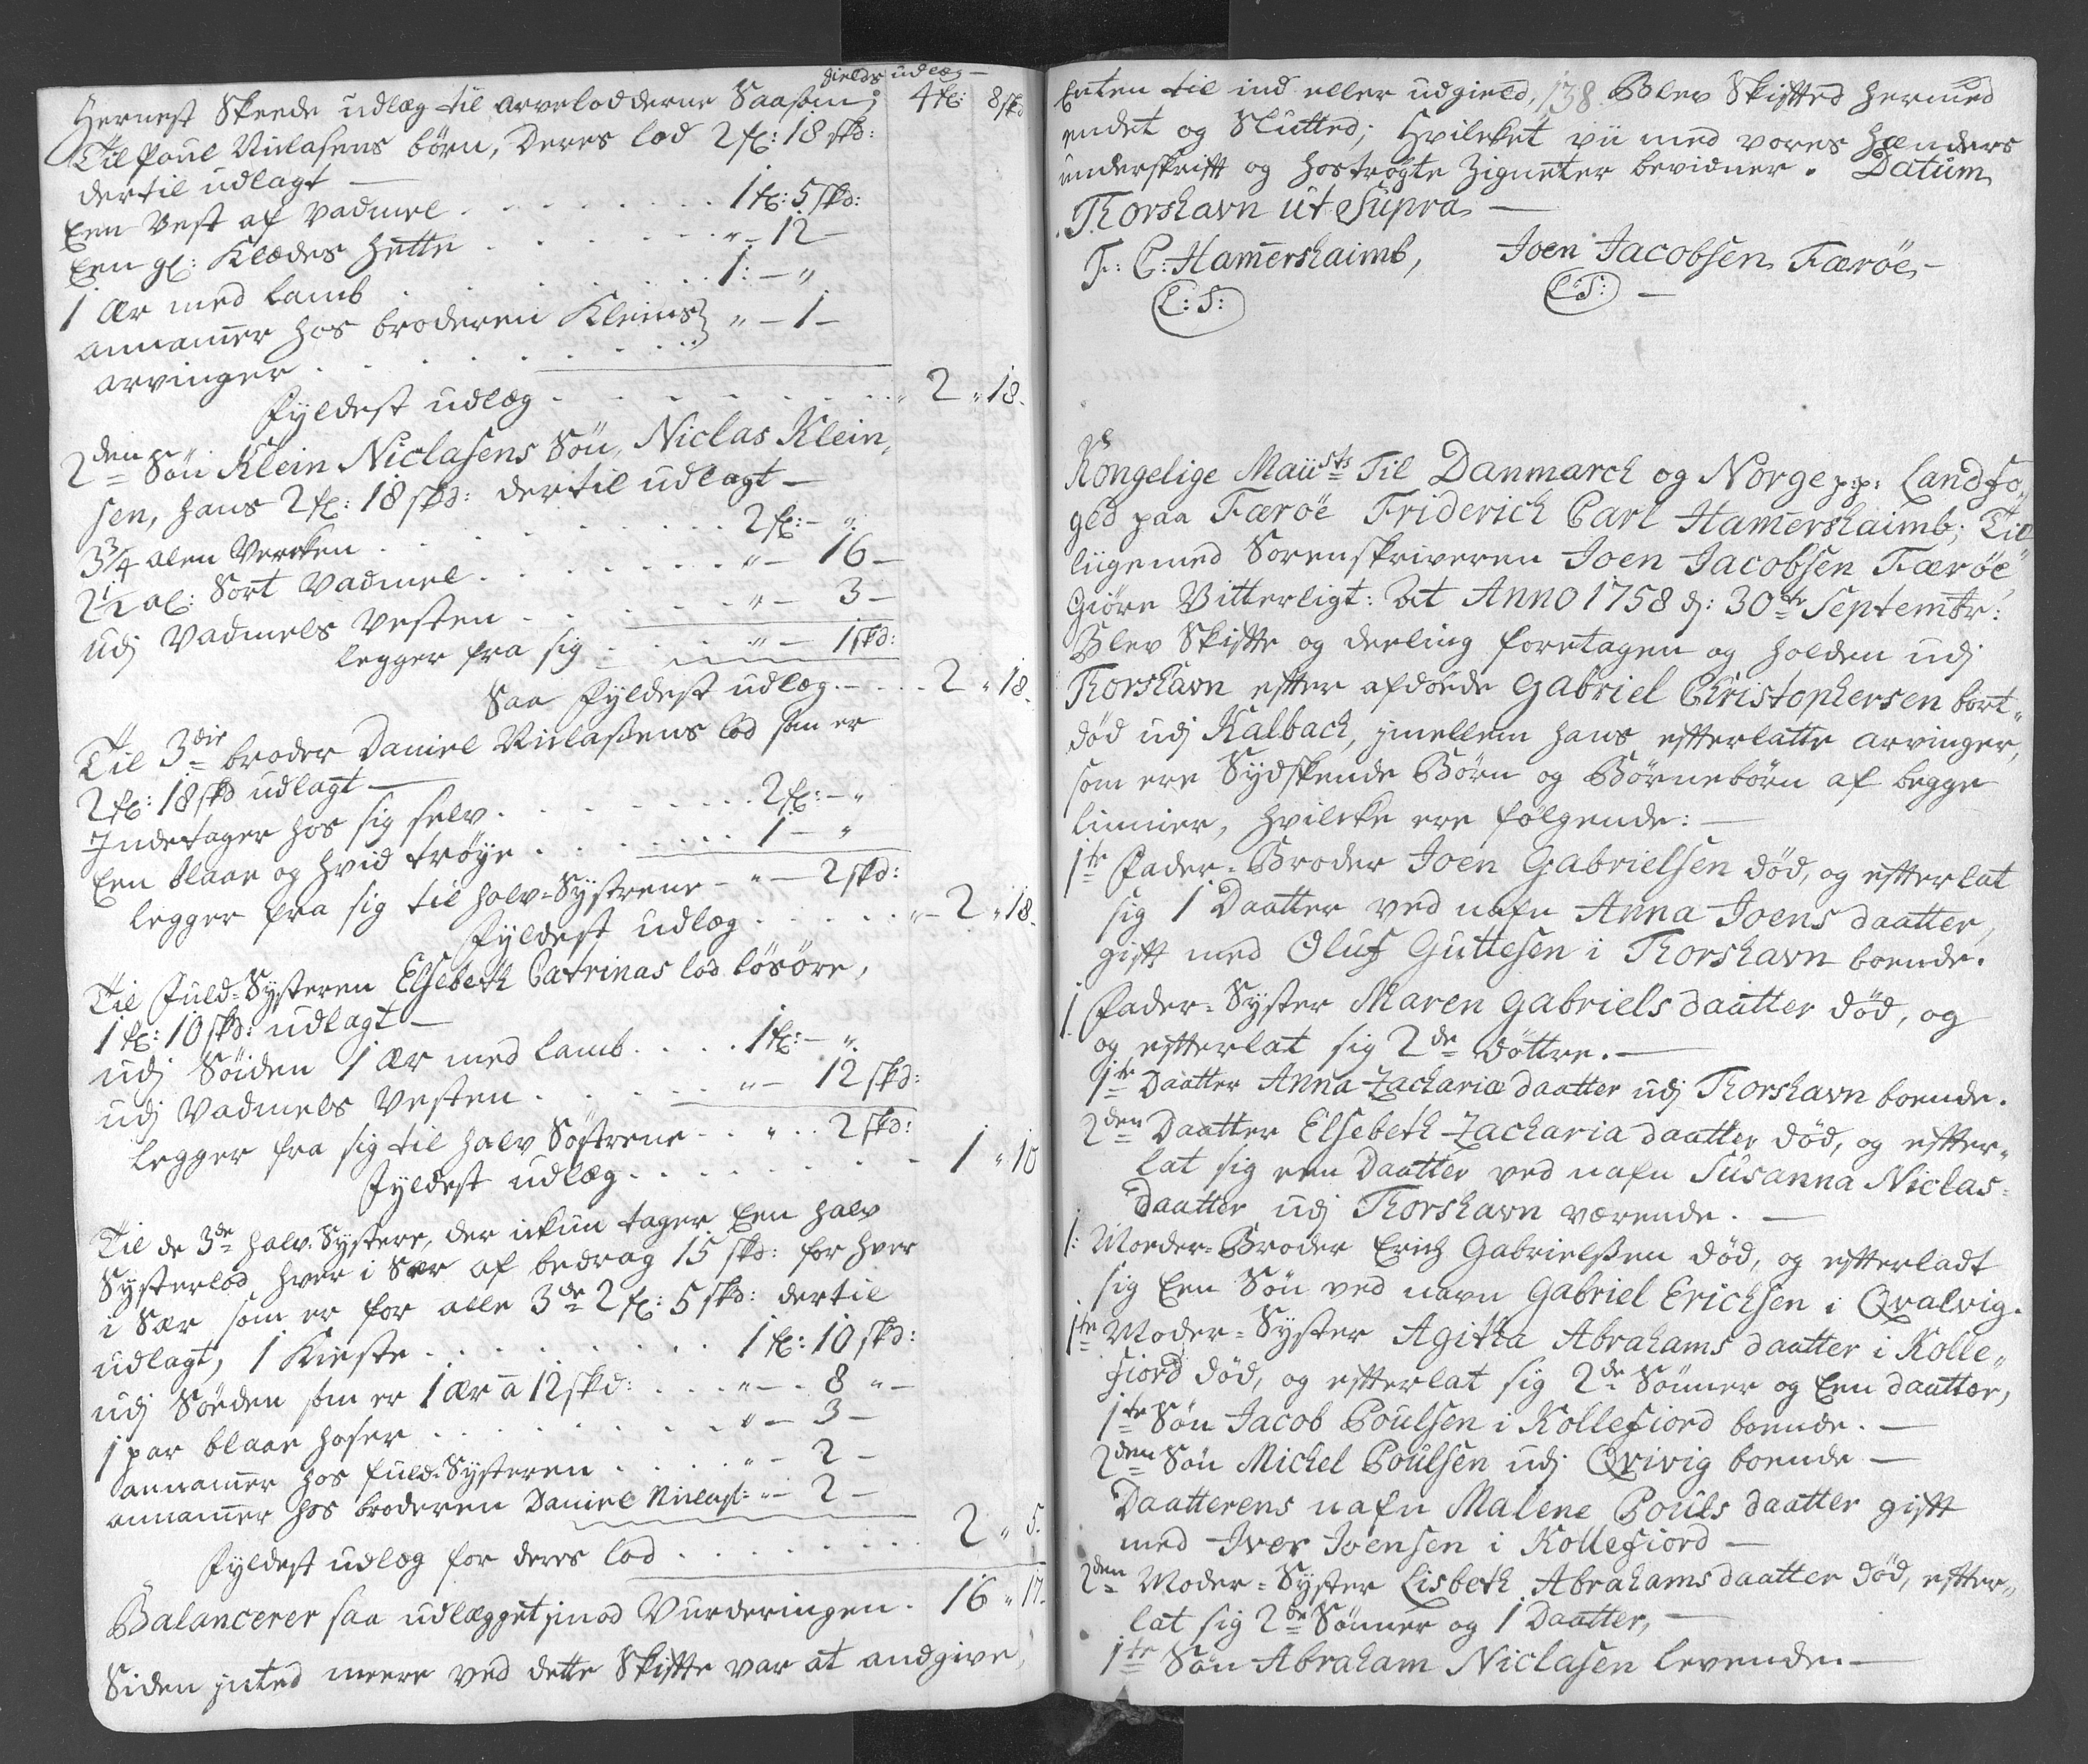 Gields udlæg —
Hernest Skeede udlæg til arvelodderne Saasom; 4 fl: 8 skd
Til Poul Niclasens börn, Deres lod 2 fl: 18 skd:
dertil udlagt —
Een Vest af Vadmel . . . . . . . . 1 fl: 5 skd:
Een gl: Klædes Hette . . . . . . . „ — 12 —
1 Ær med lamb . . . . . . . . 1: — „
annammer hos broderen Kleins } „ — 1 —
arvinger . . . . . . . . .
Fyldest udlæg . . . . . . . . „ 2 „ 18.
2den Sön Klein Niclasens Sön, Niclas Klein„
sen, hans 2 fl: 18 skd: dertil udlagt —
3¾ alen Verken . . . . . . . . 2 fl: — „
2½ al: Sort Vadmel . . . . . . . „ — 16 —
udj Vadmels Vesten . . . . . . „ — 3 —
legger fra sig . . . . „ — 1 skd:
Saa Fyldest udlæg . — . . . 2 „ 18.
Til 3die broder Daniel Niclasens lod som er
2 fl: 18 skd udlagt —
Indetager hos sig selv . . . . . . . 2 fl: — „
Een blaae og hvid tröye . . . . . . 1 — „
legger fra sig til halv-Systrene — „ — 2 skd:
Fyldest udlæg . . . . . . „ — 2 „ 18.
Til Fuld-Systeren Elsebeth Catrinas lod lösöre,
1 fl: 10 skd: udlagt —
udj Söiden 1 ær med lamb . . . . 1 fl: — „
udj Vadmels Vesten . . . . . „ — 12 skd:
legger fra sig til halv Söstrene . . „ . . 2 skd:
Fyldest udlæg . . . . . . . . — 1 „ 10
Til de 3de halv-Systere, der ickun tager Een halv
Systerlod hver i Sær af bedrag 15 skd: for hver
i Sær som er for alle 3de 2 fl: 5 skd: dertil
udlagt, 1 Kieste . . . . . . . . . 1 fl: 10 skd:
udj Söeden som er 1 ær a 12 skd: . . . „ — . 8 „ —
1 par blaae hoser . . . . . . . . „ — 3 —
annammer hos fuld-Systeren . . . . „ — 2 —
annammer hos broderen Daniel Niclas: „ — 2 —
Fyldest udlæg for deres lod . . . . . . . . 2 „ 5.
Balancerer saa udlægget jmod Vurderingen . 16 „ 17.
Siden inted meere ved dette Skiftte var at andgive,
Enten til ind eller udgield, 138. Blev Skiftted hermed
endet og Slutted; Hvilcket vii med vores hænders
underskrifft og hoströgte Zigneter bevidner. Datum
Thorshavn ut Supra —
F: C: Hamershaimb, Joen Jacobsen Færöe —
L: S: L: S: —
Kongelige Mausts Til Danmarck og Norge p:p: Landfo„
ged paa Færöe Friderich Carl Hamershaimb; Til
liigemed Sorenskriveren Joen Jacobsen Færöe
Giöre Vitterligt: At Anno 1758 d: 30te Septembr:
Blev Skiftte og deeling foretagen og holden udj
Thorshavn efter afdöede Gabriel Christophersen bort„
död udj Kalback, jmellem hans efterlatte arvinger,
som ere Sydskende Börn og Börnebörn af begge
linnier, Hvilcke ere fölgende: —
1te Fader-Broder Joen Gabrielsen död, og efterlat
sig 1 Daatter ved nafn Anna Joens daatter,
gift med Oluf Guttesen i Thorshavn boende.
1 Fader-Syster Maren Gabriels daatter död, og
og efterlat sig 2de döttre. —
1te Daatter Anna Zachariæ daatter udj Thorshavn boende.
2den Daatter Elsebeth Zacharia daatter död, og efter„
lat sig een Daatter ved nafn Susanna Niclas-
Daatter udj Thorshavn værende. —
1: Moeder-Broder Erich Gabrielsen död, og efterladt
sig Een Sön ved navn Gabriel Erichsen i Qvalvig.
1te Moder-Syster Agitha Abrahams daatter i Kolle„
fiord död, og efterlat sig 2de Sönner og Een daatter,
1te Sön Jacob Poulsen i Kollefiord boende. —
2den Sön Michel Poulsen udj Qvivig boende —
Daatterens nafn Malene Pouls daatter gift
med Iver Joensen i Kollefiord —
2den Moder-Syster Lisbeth Abrahams daatter död, efter„
lat sig 2de Sönner og 1 Daatter, —
1te Sön Abraham Niclasen levende. —